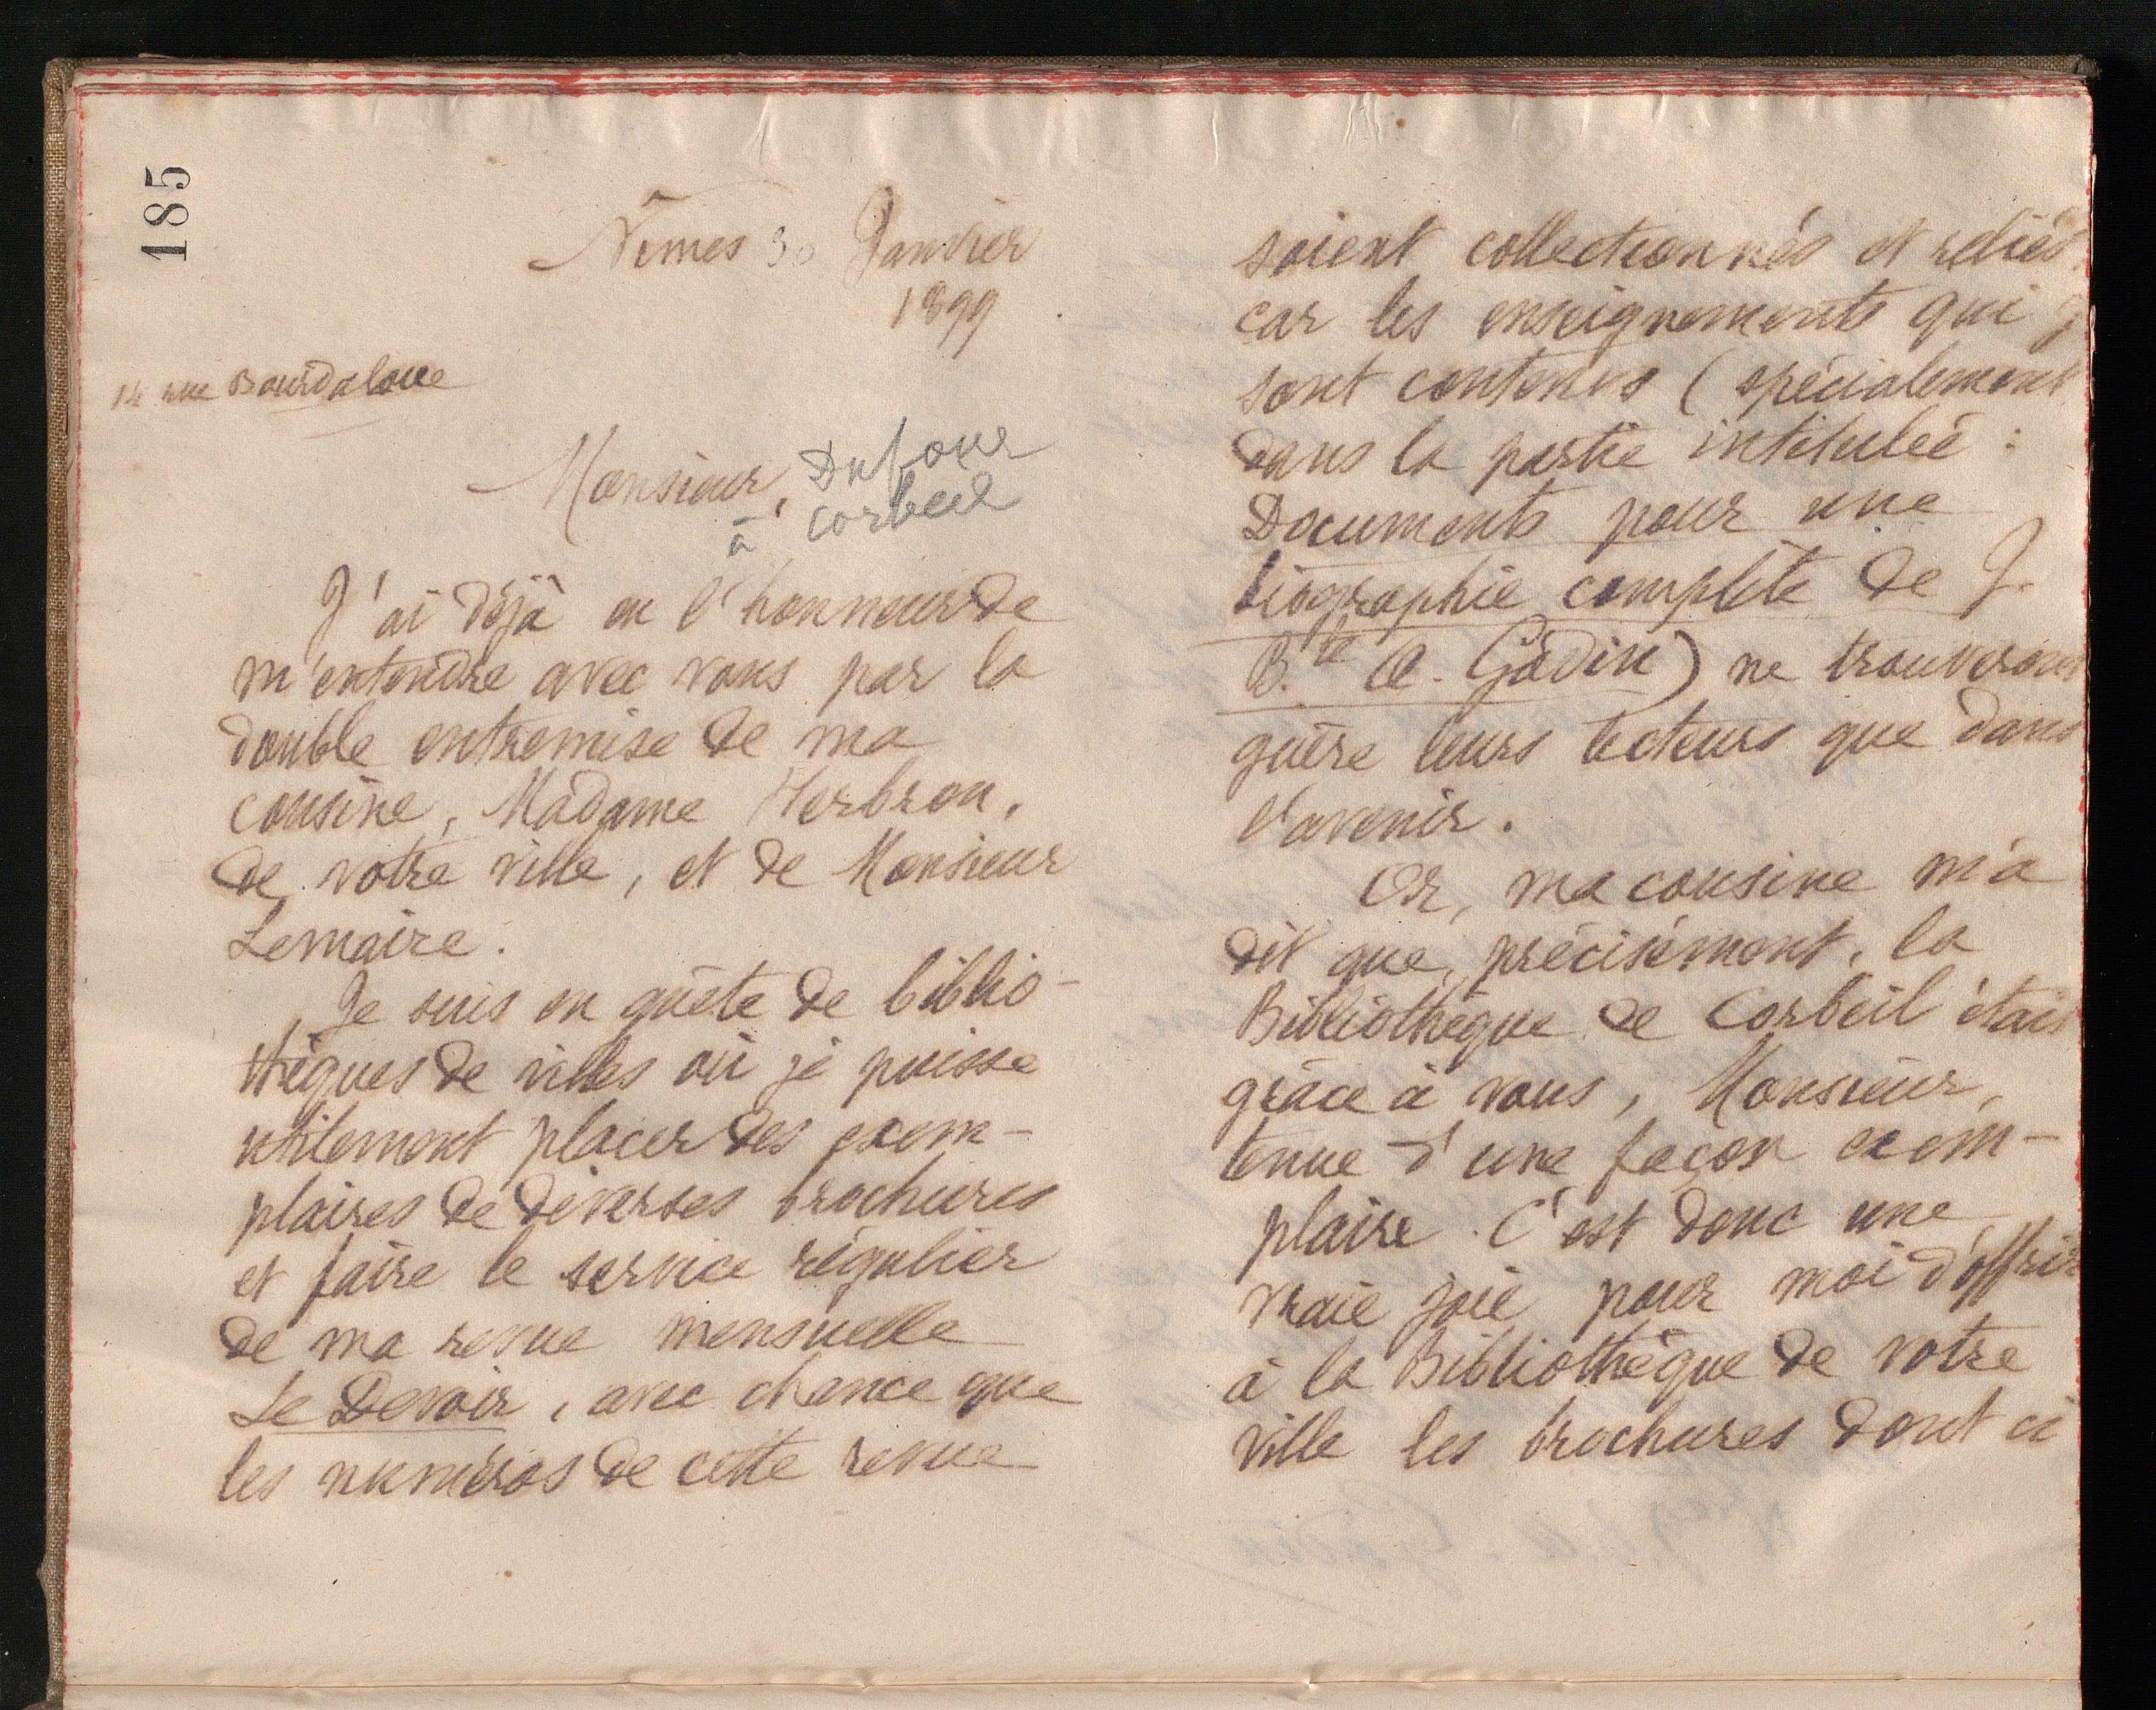 185
Nîmes 30 Janvier
1899
14 rue Bourdaloue
Monsieur, Dufour
à Corbeil
J'ai déjà eu l'honneur de
m'entendre avec vous par la
double entremise de ma
cousine, Madame Herbron,
de votre ville, et de Monsieur
Lemaire.
Je suis en quête de biblio-
thèques de villes où je puisse
utilement placer des exem-
plaires de diverses brochures
et faire le service régulier
de ma revue mensuelle
Le Devoir, avec chance que
les numéros de cette revue
soient collectionnés et reliés,
car les enseignements qui y
sont contenus (spécialement
dans la partie intitulée :
Documents pour une
biographie complète de J.
B.te A. Godin) ne trouveront
guère leurs lecteurs que dans
l'avenir.
Or, ma cousine m'a
dit que, précisément, la
Bibliothèque de Corbeil était
grâce à vous, Monsieur,
tenue d'une façon exem-
plaire. C'est donc une
vraie joie pour moi d'offrir
à la Bibliothèque de votre
ville les brochures dont ci